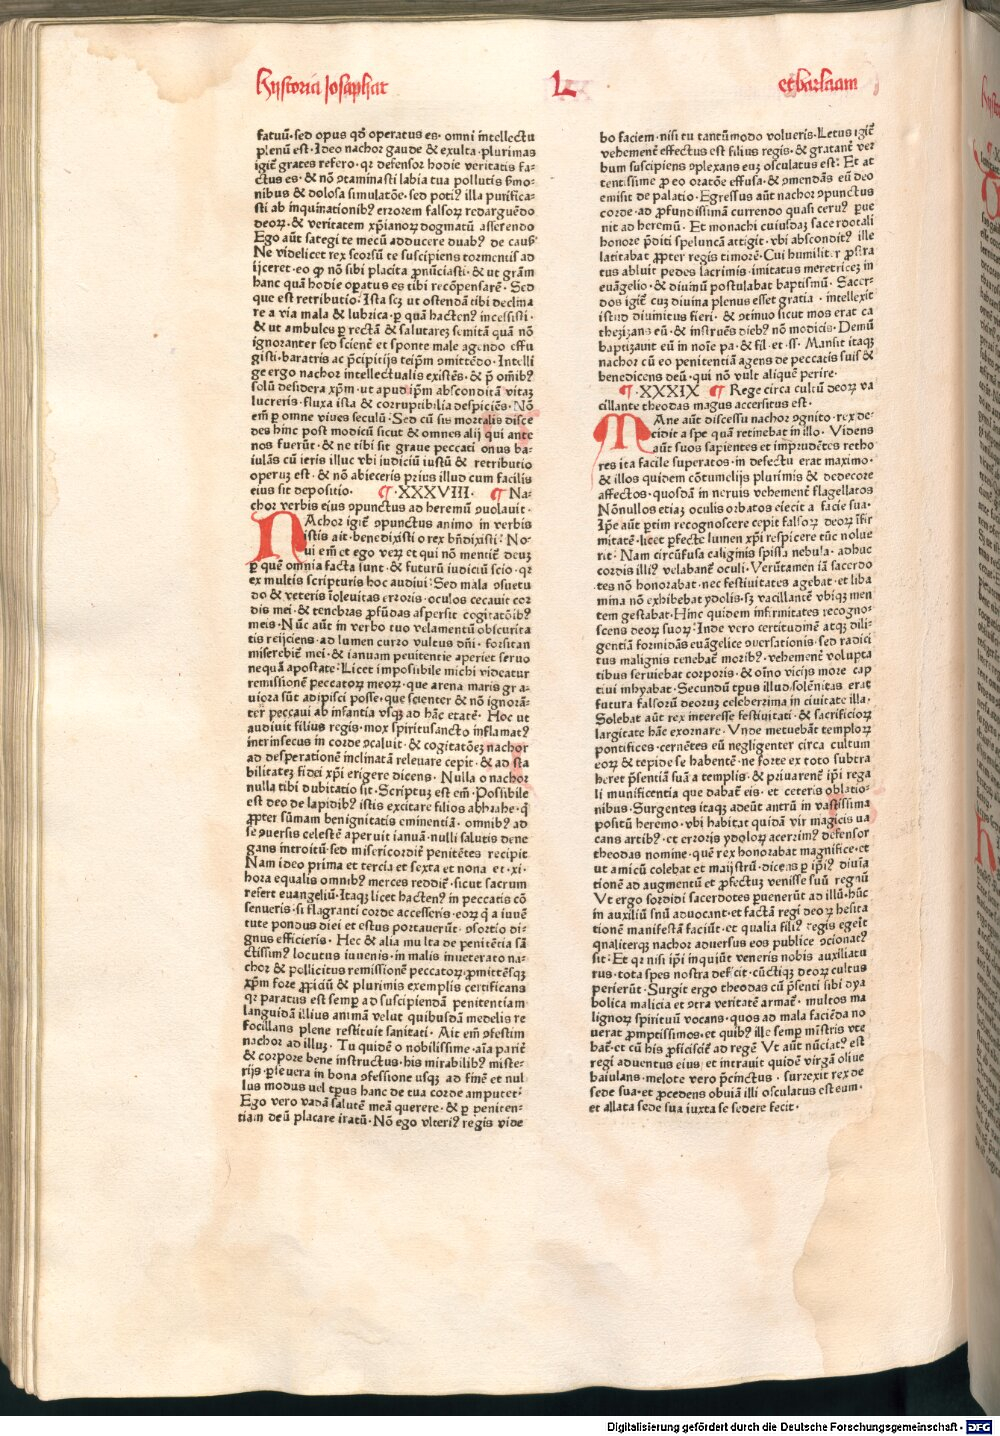 Hystoria Josaphat
L
et barlaam
fatuū·sed opus qď operatus es·omni intellectu
plenū est·Ideo nachor gaude & exulta·plurimas
igiť grates refero·qꝛ defensor hodie veritatis fa-
ctus es·& nō ꝯtaminasti labia tua pollutis ẜmo-
nibus & dolosa simulatōe·sed poti⁹ illa purifica-
sti ab inquinationib⁹ errorem falsoꝝ redarguēdo
deoꝝ·& veritatem xp̄ianoꝝ dogmatū asserendo
Ego aūt sategi te mecū adducere duab⁹ de caus̄
Ne videlicet rex seorsū te suscipiens tormentis ad
ijceret·eo ꝙ nō sibi placita ꝓnūciasti·& ut gr̄am
hanc quā hodie oꝑatus es tibi recōpensarē·Sed
que est retributio·Ista scꝫ ut ostendā tibi declina
re a via mala & lubrica·ꝑ quā hacteñ incessisti·
& ut ambules ꝑ rectā & salutareꝫ semitā quā nō
ignoranter sed scienť et sponte male agendo effu
gisti·baratris ac p̄cipitijs teip̄m ꝯmittēdo·Intelli
ge ergo nachor intellectualis existēs·& p̄ om̄ib⁹
solū desidera xp̄m·ut apud ip̄m absconditā vitaꝫ
lucreris·fluxa ista & corruptibilia despiciēs·Nō
em̄ ꝑ omne vives seculū·Sed cū sis mortalis disce
des hinc post modicū sicut & omnes alij qui ante
nos fuerūt·& ne tibi sit graue peccati onus ba-
iulās cū ieris illuc vbi iudiciū iustū & retributio
operuꝫ est·& nō abieceris prius illud cum facilis
eius sit depositio· ¶·XXXVIII· ¶ Na-
chor verbis eius ꝯpunctus ad heremū ꝯuolauit·
NAchor igiť ꝯpunctus animo in verbis
istis ait·benedixisti o rex bn̄dixisti·No-
ui em̄ et ego veꝝ et qui nō mentiť deuꝫ
ꝑ quē omnia facta sunt·& futurū iudiciū scio·qꝛ
ex multis scripturis hoc audiui·Sed mala ꝯsuetu
do & veteris īoleuitas erroris·oculos cecauit cor
dis mei·& tenebras ꝓfūdas aspersit cogitatōib⁹
meis·Nūc aūt in verbo tuo velamentū obscurita
tis reijciens·ad lumen curro vultus dn̄i·forsitan
miserebiť mei·& ianuam penitentie aperiet seruo
nequā apostate·Licet impossibile michi videatur
remissionē peccatoꝝ meoꝝ·que arena maris gra-
uiora sūt adipisci posse·que scienter & nō ignorā-
ter peccaui ab infantia vsqꝫ ad hāc etatē·Hoc ut
audiuit filius regis·mox spiritusancto inflamat⁹
intrinsecus in corde ꝯcaluit·& cogitatōeꝫ nachor
ad desperationē inclinatā releuare cepit·& ad sta
bilitateꝫ fidei xp̄i erigere dicens·Nulla o nachor
nulla tibi dubitatio sit·Scriptuꝫ est em̄·Possibile
est deo de lapidib⁹ istis excitare filios abrahe·q̄
ꝓpter sūmam benignitatis eminentiā·omnib⁹ ad
se ꝯuersis celestē aperuit ianuā·nulli salutis dene
gans introitū·sed misericordiť penitētes recipit
Nam ideo prima et tercia et sexta et nona et·xi·
hora equalis omnib⁹ merces reddiť·sicut sacrum
refert euangeliū·Itaqꝫ licet hacteñ in peccatis cō
senueris·si flagranti corde accesseris·eoꝝ q̄ a iuuē
tute pondus diei et estus portauerūt·ꝯsortio di-
gnus efficieris·Hec & alia multa de penitētia sā
ctissim⁹ locutus iuuenis·in malis inueterato na-
chor & pollicitus remissionē peccatoꝝ·ꝓmittēsqꝫ
xp̄m fore ꝓpiciū & plurimis exemplis certificans
qꝛ paratus est semꝑ ad suscipiendā penitentiam
languidā illius animā velut quibusdā medelis re
focillans plene restituit sanitati·Ait em̄ ꝯfestim
nachor ad illuꝫ·Tu quidē o nobilissime·aīa pariť
& corpore bene instructus·his mirabilib⁹ miste-
rijs·ꝑseuera in bona ꝯfessione usqꝫ ad finē et nul
lus modus uel tp̄us hanc de tua corde amputet·
Ego vero vadā salutē meā querere·& ꝑ peniten-
tiam deū placare iratū·Nō ego vlteri⁹ regis vide
bo faciem·nisi tu tantūmodo volueris·Letus igiť
vehemenť effectus est filius regis·& gratanť ver
bum suscipiens ꝯplexans euꝫ osculatus est·Et at
tentissime ꝓ eo oratōe effusa·& ꝯmendās eū deo
emisit de palatio·Egressus aūt nachor ꝯpunctus
corde·ad ꝓfundissimā currendo quasi ceru⁹ ꝑue
nit ad heremū·Et monachi cuiusdaꝫ sacerdotali
honore p̄diti speluncā attigit·vbi abscondit⁹ ille
latitabat ꝓpter regis timorē·Cui humiliter ꝓstra
tus abluit pedes lacrimis·imitatus meretriceꝫ in
euāgelio·& diuinū postulabat baptismū·Sacer-
dos igiť cuꝫ diuina plenus esset gratia·intellexit
istud diuinitus fieri·& ꝯtinuo sicut mos erat ca
thezizans eū·& instruēs dieb⁹ nō modicis·Demū
baptizauit eū in noīe pa·& fil·et·ss·Mansit itaqꝫ
nachor cū eo penitentiā agens de peccatis suis &
benedicens deū·qui nō vult aliquē perire·
¶·XXXIX ¶ Rege circa cultū deoꝝ va
cillante theodas magus accersitus est·
MAne aūt discessu nachor ꝯgnito·rex de-
cidit a spe quā retinebat in illo·Videns
aūt suos sapientes et imprudētes retho
res ita facile superatos·in defectu erat maximo·
& illos quidem cōtumelijs plurimis & dedecore
affectos·quosdā in neruis vehemenť flagellatos
Nōnullos etiaꝫ oculis orbatos eiecit a facie sua·
Ip̄e aūt ꝑtim recognoscere cepit falsoꝝ deoꝝ īfir
mitatē·licet ꝑfecte lumen xp̄i respicere tūc nolue
rit·Nam circūfusa caliginis spissa nebula·adhuc
cordis illi⁹ velabanť oculi·Verūtamen iā sacerdo
tes nō honorabat·nec festiuitates agebat·et liba
mina nō exhibebat ydolis·sꝫ vacillantē vbiqꝫ men
tem gestabat·Hinc quidem infirmitates recogno-
scens deoꝝ suoꝝ·Inde vero certitudinē atqꝫ dili-
gentiā formidās euāgelice ꝯuersationis·sed radici
tus malignis tenebať morib⁹·vehemenť volupta
tibus seruiebat corporis·& oīno vicijs more cap
tiui inhyabat·Secundū tp̄us illud solēnitas erat
futura falsorū deoruꝫ celeberrima in ciuitate illa·
Solebat aūt rex interesse festiuitati·& sacrificioꝝ
largitate hāc exornare·Vnde metuebāt temploꝝ
pontifices·cernētes eū negligenter circa cultum
eoꝝ & tepide se habentē·ne forte ex toto subtra
heret p̄sentiā suā a templis·& priuarenť ip̄i rega
li munificentia que dabať eis·et ceteris oblatio-
nibus·Surgentes itaqꝫ adeūt antrū in vastissima
positū heremo·vbi habitat quidā vir magicis ua
cans artib⁹·et erroris ydoloꝝ acerrim⁹ defensor
theodas nomine·quē rex honorabat magnifice·et
ut amicū colebat et maijstrū·dicens ꝑ ip̄i⁹ diuīa
tionē ad augmentū et ꝓfectuꝫ venisse suū regnū
Vt ergo sordidi sacerdotes ꝑuenerūt ad illū·hūc
in auxiliū suū aduocant·et factā regi deoꝝ hesita
tionē manifestā faciūt·et qualia fili⁹ regis egeīt
qualiterqꝫ nachor aduersus eos publice ꝯcionat⁹
sit·Et qꝛ nisi ip̄i inquiūt veneris nobis auxiliatu
rus·tota spes nostra deficit·cūctiqꝫ deoꝝ cultus
perierūt·Surgit ergo theodas cū p̄senti sibi dya
bolica malicia et ꝯtra veritatē armať·multos ma
lignoꝝ spirituū vocans·quos ad mala faciēda no
uerat ꝓmptissimos·et quib⁹ ille semp mīstris vte
bať·et cū his ꝓficisciť ad regē Vt aūt nūciat⁹ est
regi aduentus eius·et intrauit quidē virgā oliue
baiulans·melote vero p̄cinctus·surrexit rex de
sede sua·et ꝓcedens obuiā illi osculatus est eum·
et allata sede sua iuxta se sedere fecit·
Digitalisierung gefördert durch die Deutsche Forschungsgemeinschaft - DFG